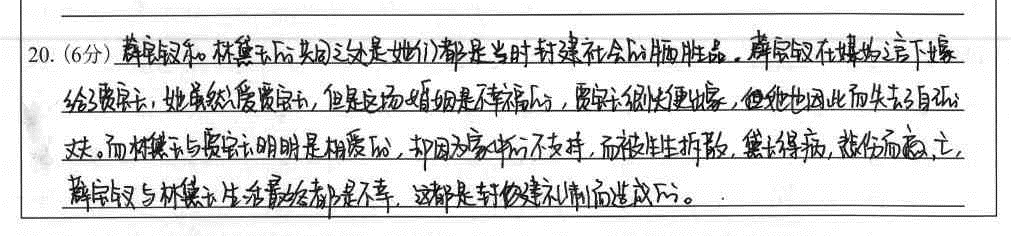 20. (6分) 薛宝钗和林黛玉的共同之处是她们都是当时封建社会的牺牲品。薛宝钗在媒妁之言下嫁
给了贾宝玉，她虽然爱贾宝玉，但是这场婚姻是不幸福的，贾宝玉很快便出家，但她也因此而失去了自己的
丈夫。而林黛玉与贾宝玉明明是相爱的，却因为家中的不支持，而被生生拆散，黛玉得病，悲伤而亡，
薛宝钗与林黛玉生活最终都是不幸，这都是封建礼制而造成的。